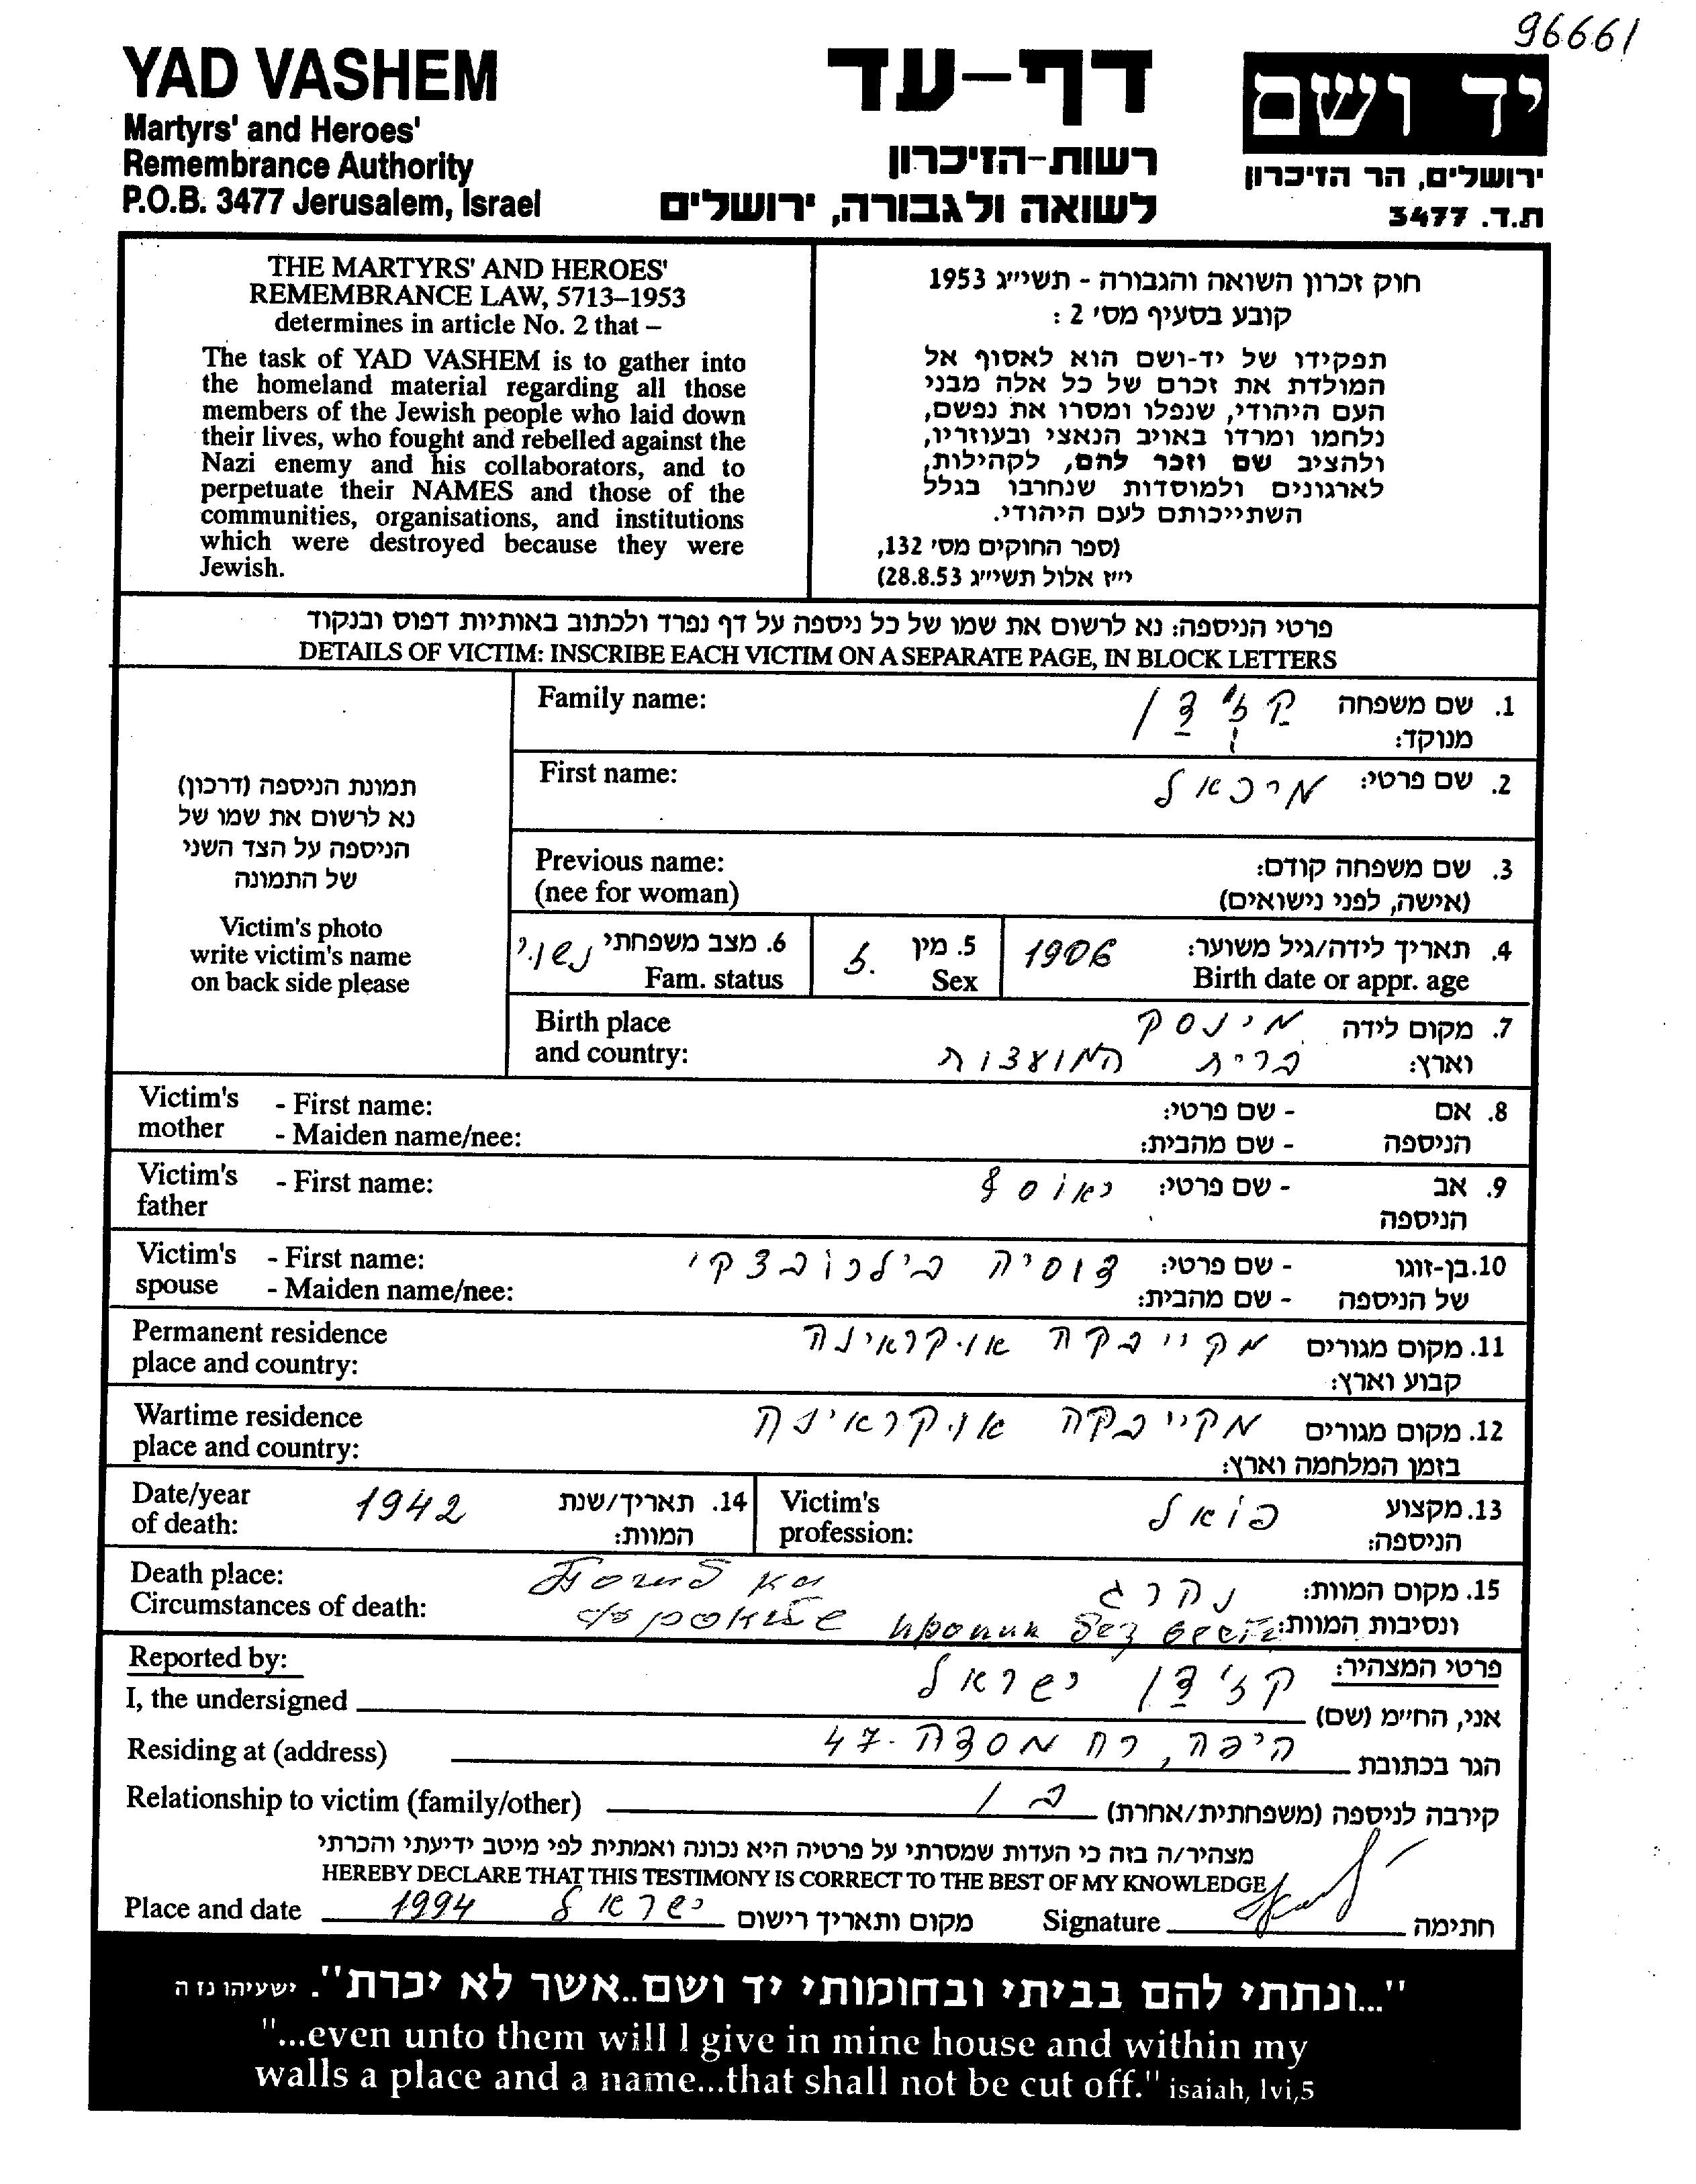 96661
YAD VASHEM
Martyrs' and Heroes'
Remembrance Authority
P.O.B. 3477 Jerusalem, Israel
דף-עד
רשות-הזיכרון
לשואה ולגבורה, ירושלים
יד ושם
ירושלים, הר הזיכרון
ת.ד. 3477
THE MARTYRS' AND HEROES'
REMEMBRANCE LAW, 5713–1953
determines in article No. 2 that –
The task of YAD VASHEM is to gather into
the homeland material regarding all those
members of the Jewish people who laid down
their lives, who fought and rebelled against the
Nazi enemy and his collaborators, and to
perpetuate their NAMES and those of the
communities, organisations, and institutions
which were destroyed because they were
Jewish.
חוק זכרון השואה והגבורה - תשי״ג 1953
קובע בסעיף מס׳ 2 :
תפקידו של יד-ושם הוא לאסוף אל
המולדת את זכרם של כל אלה מבני
העם היהודי, שנפלו ומסרו את נפשם,
נלחמו ומרדו באויב הנאצי ובעוזריו,
ולהציב שם וזכר להם, לקהילות,
לארגונים ולמוסדות שנחרבו בגלל
השתייכותם לעם היהודי.
(ספר החוקים מס׳ 132,
י״ז אלול תשי״ג 28.8.53)
פרטי הניספה: נא לרשום את שמו של כל ניספה על דף נפרד ולכתוב באותיות דפוס ובנקוד
DETAILS OF VICTIM: INSCRIBE EACH VICTIM ON A SEPARATE PAGE, IN BLOCK LETTERS
תמונת הניספה (דרכון)
נא לרשום את שמו של
הניספה על הצד השני
של התמונה
Victim's photo
write victim's name
on back side please
1. שם משפחה קז'דן Family name:
מנוקד:
2. שם פרטי: מיכאל First name:
3. שם משפחה קודם: Previous name:
(אישה, לפני נישואים) (nee for woman)
4. תאריך לידה/גיל משוער: 1906 5. מין ז. 6. מצב משפחתי נשוי
Birth date or appr. age Sex Fam. status
7. מקום לידה מינסק Birth place
וארץ: ברית המועצות and country:
8. אם - שם פרטי: Victim's - First name:
הניספה - שם מהבית: mother - Maiden name/nee:
9. אב - שם פרטי: יאוסף Victim's - First name:
הניספה father
10. בן-זוגו - שם פרטי: דוסיה בילכובצקי Victim's - First name:
של הניספה - שם מהבית: spouse - Maiden name/nee:
11. מקום מגורים מקייבקה אוקראינה Permanent residence
קבוע וארץ: place and country:
12. מקום מגורים מקייבקה אוקראינה Wartime residence
בזמן המלחמה וארץ: place and country:
13. מקצוע פואל Victim's
הניספה: profession:
14. תאריך/שנת 1942 Date/year
המוות: of death:
15. מקום המוות: נהרג Death place:
ונסיבות המוות: Circumstances of death:
пропал без вести
פרטי המצהיר: Reported by:
אני, החי״מ (שם) קז'דן ישראל I, the undersigned
הגר בכתובת חיפה, רח מסדה 47 Residing at (address)
קירבה לניספה (משפחתית/אחרת) בן Relationship to victim (family/other)
מצהיר/ה בזה כי העדות שמסרתי על פרטיה היא נכונה ואמתית לפי מיטב ידיעתי והכרתי
HEREBY DECLARE THAT THIS TESTIMONY IS CORRECT TO THE BEST OF MY KNOWLEDGE
Place and date 1994 ישראל מקום ותאריך רישום Signature חתימה
"...ונתתי להם בביתי ובחומותי יד ושם..אשר לא יכרת". ישעיהו נז ה
"...even unto them will I give in mine house and within my
walls a place and a name...that shall not be cut off." isaiah, lvi,5